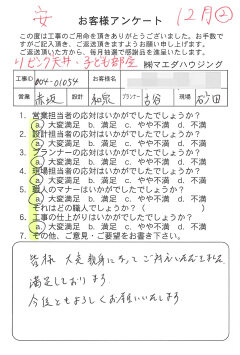 安 お客様アンケート 12月②
この度は工事のご用命を頂きありがとうございました。お手数で
すがご記入頂き、ご返送頂きますようお願い申し上げます。
ご返送頂いた方から、毎月抽選で感謝品を進呈いたします。
リビング天井・子ども部屋 ㈱マエダハウジング
工事ID 004-01054 お客様名
営業 赤坂 設計 和泉 プランナー 古谷 現場 砂田
1. 営業担当者の応対はいかがでしたでしょうか？
a. 大変満足 b. 満足 c. やや不満 d. 不満
2. 設計担当者の応対はいかがでしたでしょうか？
a. 大変満足 b. 満足 c. やや不満 d. 不満
3. プランナーの応対はいかがでしたでしょうか？
a. 大変満足 b. 満足 c. やや不満 d. 不満
4. 現場担当者の応対はいかがでしたでしょうか？
a. 大変満足 b. 満足 c. やや不満 d. 不満
5. 職人のマナーはいかがでしたでしょうか？
a. 大変満足 b. 満足 c. やや不満 d. 不満
それはどの職人でしょうか？（ ）
6. 工事の仕上がりはいかがでしたでしょうか？
a. 大変満足 b. 満足 c. やや不満 d. 不満
7. その他、ご意見・ご要望をお書き下さい。
皆様 大変親身になってご対応いただきまして
満足しております
今後ともよろしくお願いいたします